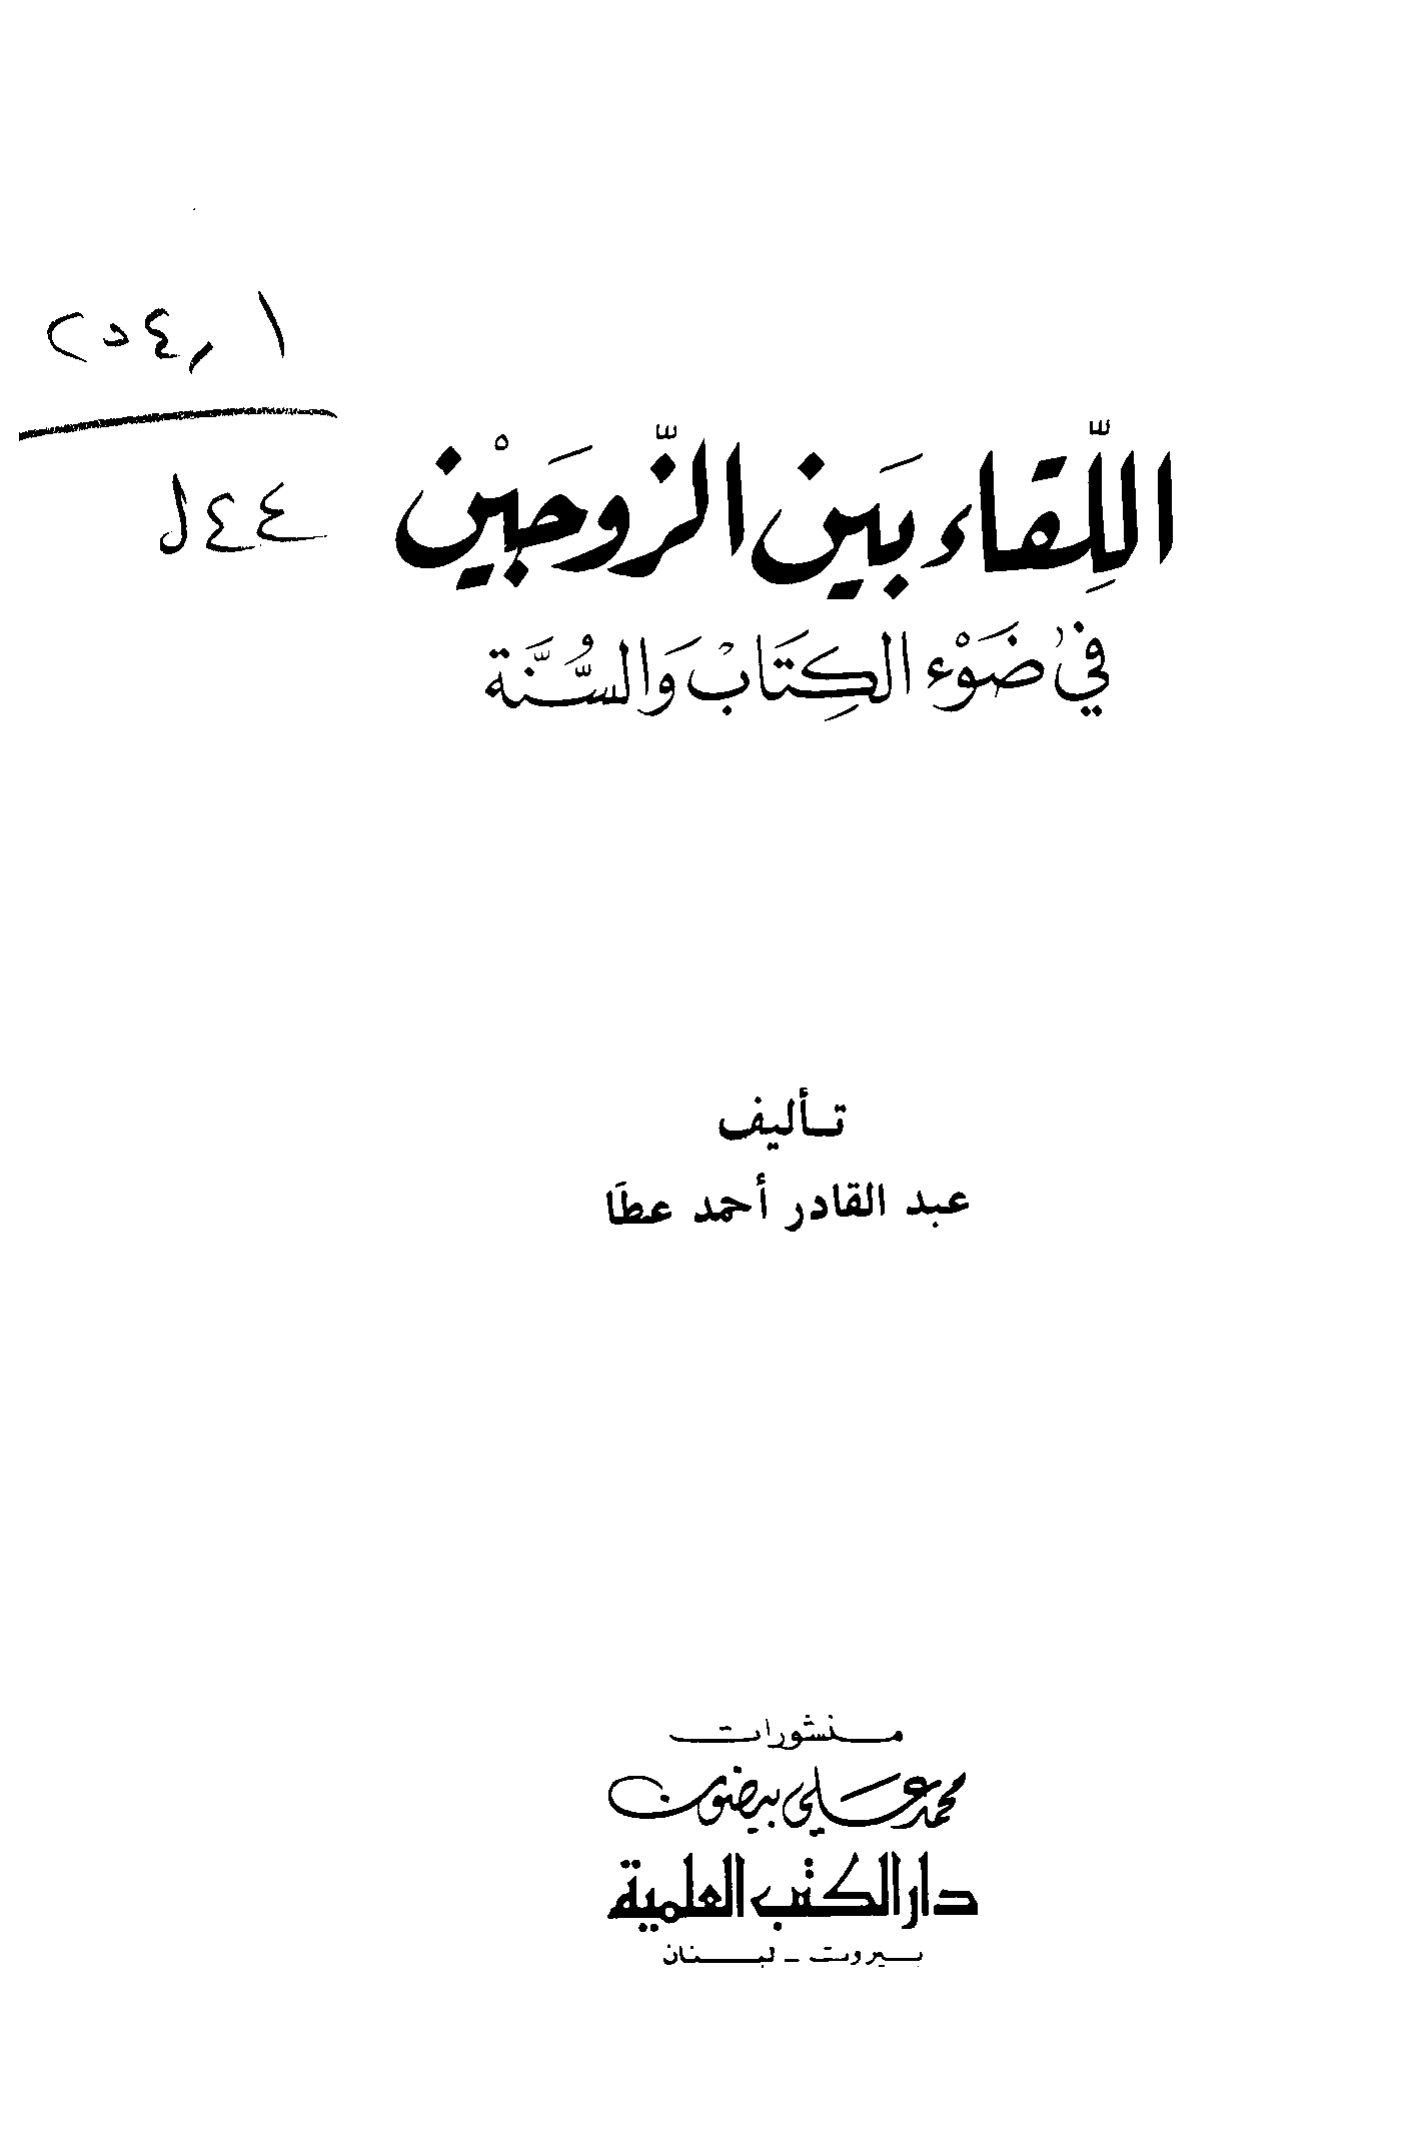 ٢٥٤٫١
ل٤٤
اللِّقاء بَين الزَّوجَيْن
في ضَوْء الكِتَابْ وَالسُّنَّة
تأليف
عبد القادر أحمد عطَا
منشورات
محمد علي بيضون
دار الكتب العلمية
بيروت - لبنان